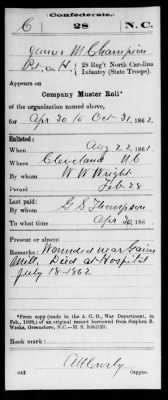 (Confederate.)
C 28 N.C.
James M Champion
Pvt, Co. H, 28 Reg't North Carolina
Infantry (State Troops).
Appears on
Company Muster Roll*
of the organization named above,
for Apr 30 to Oct 31, 1862
Enlisted:
When Aug 22, 1861
Where Cleveland N C
By whom W W Wright
Period Feb 28
Last paid:
By whom G S Thompson
To what time Apr 30, 186
Present or absent
Remarks: Wounded near Gains
Mills. Died at Hospital
July 18-1862
*From copy (made in the A. G. O., War Department, in
Feb., 1909,) of an original record borrowed from Stephen B.
Weeks, Greensboro, N.C.
Book mark:
Copyist.